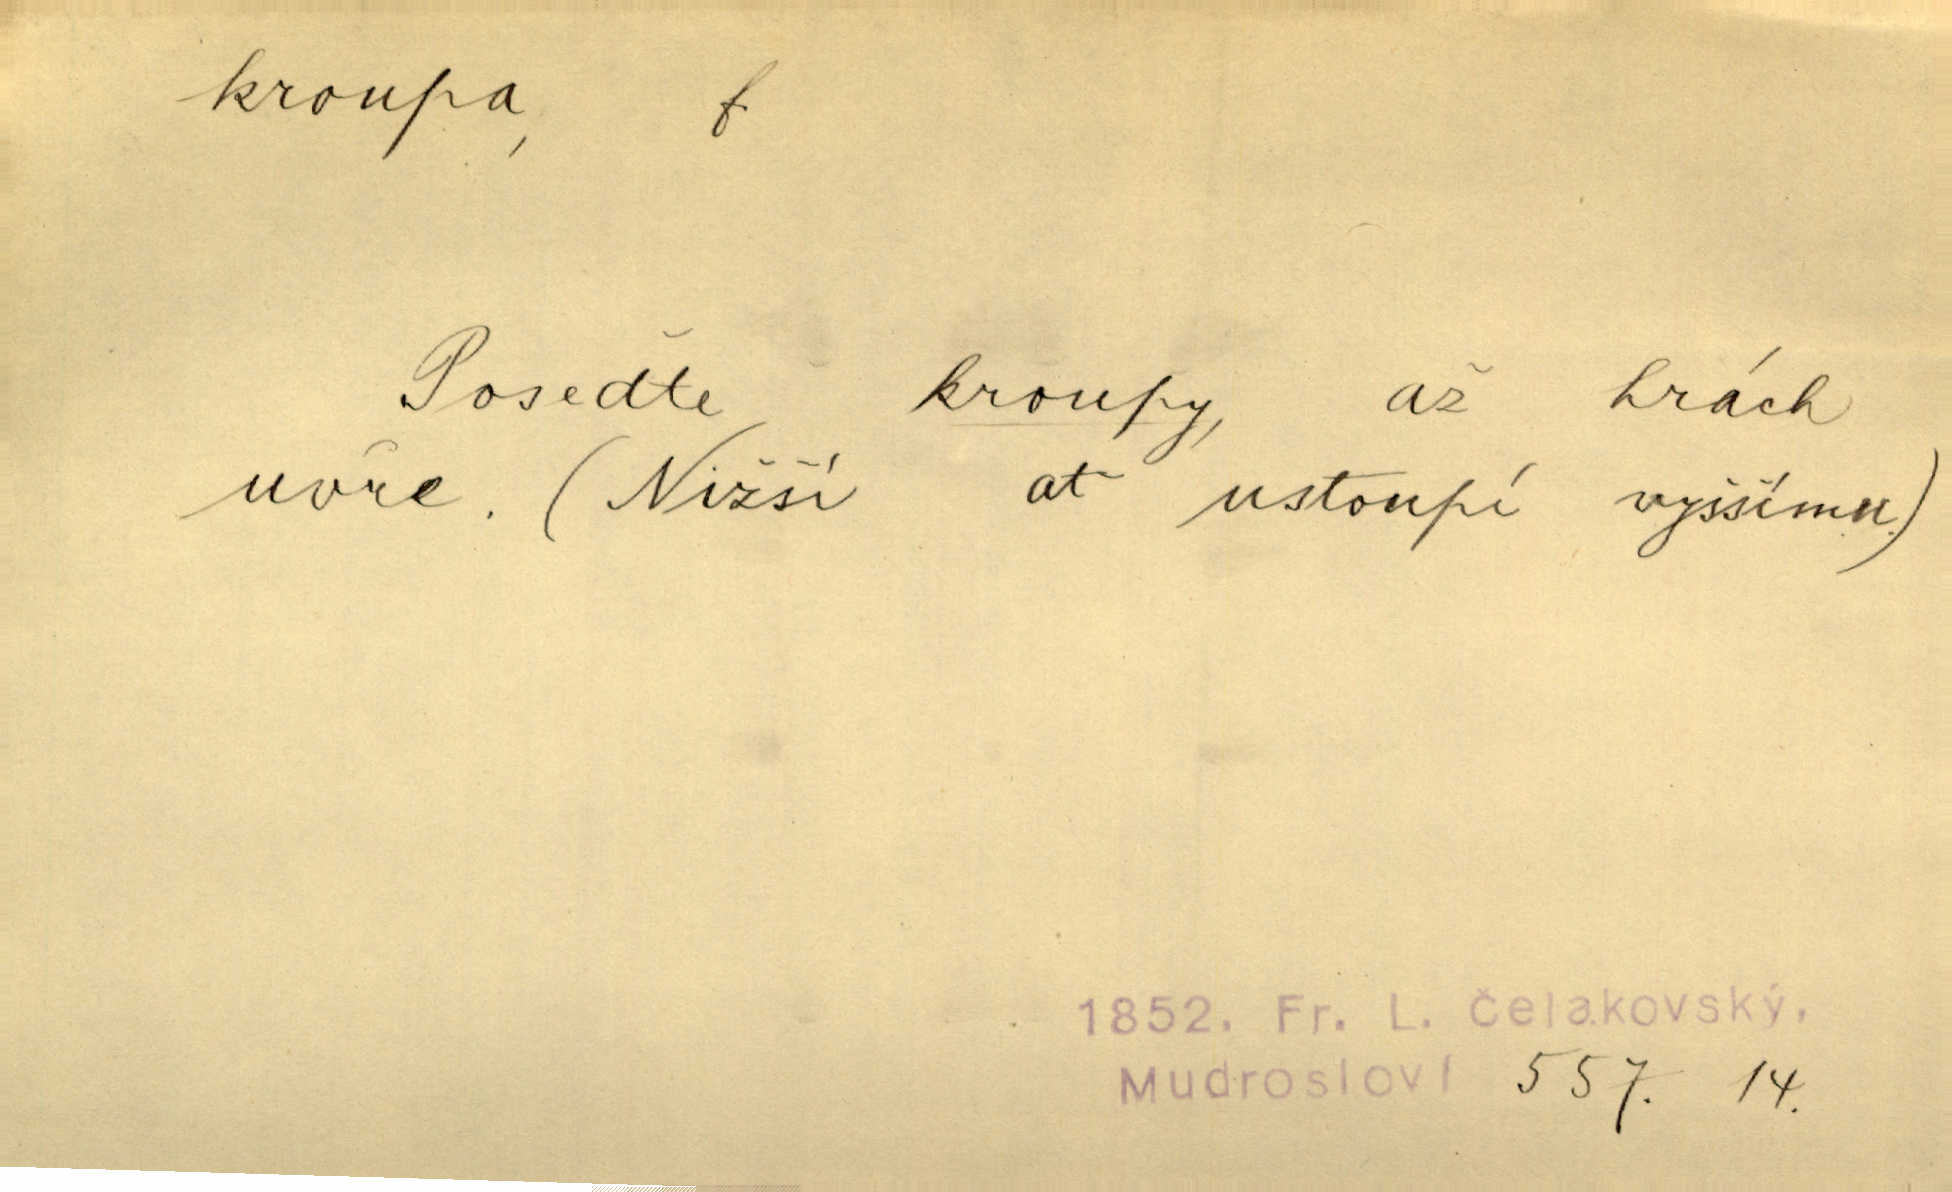 kroupa, f
Poseďte kroupy, až hrách
uvře. (Nižší ať ustoupí vyššímu.)
1852. Fr. L. Čelakovský,
Mudrosloví 557. 14.